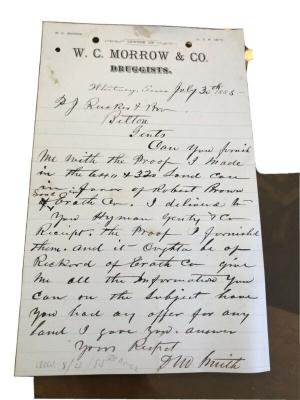 OFFICE OF
W. C. MORROW & CO.
DRUGGISTS.
Whitney, Texas July 30th 1885
P J Rucker & Bro
Belton
Gents
Can you furnish
Me with the Proof I Made
in the Land Can
in favor of Robert Brown
Erath Co. I delivers to
you Hyman Gentry & Co
Receipt. the Proof I furnished
them. and it Oughta be of
Reckord of Erath Co give
me all the Information You
Can on the Subject have
you had any offer for any
land I gave you. answer
Yours Respct
Smith